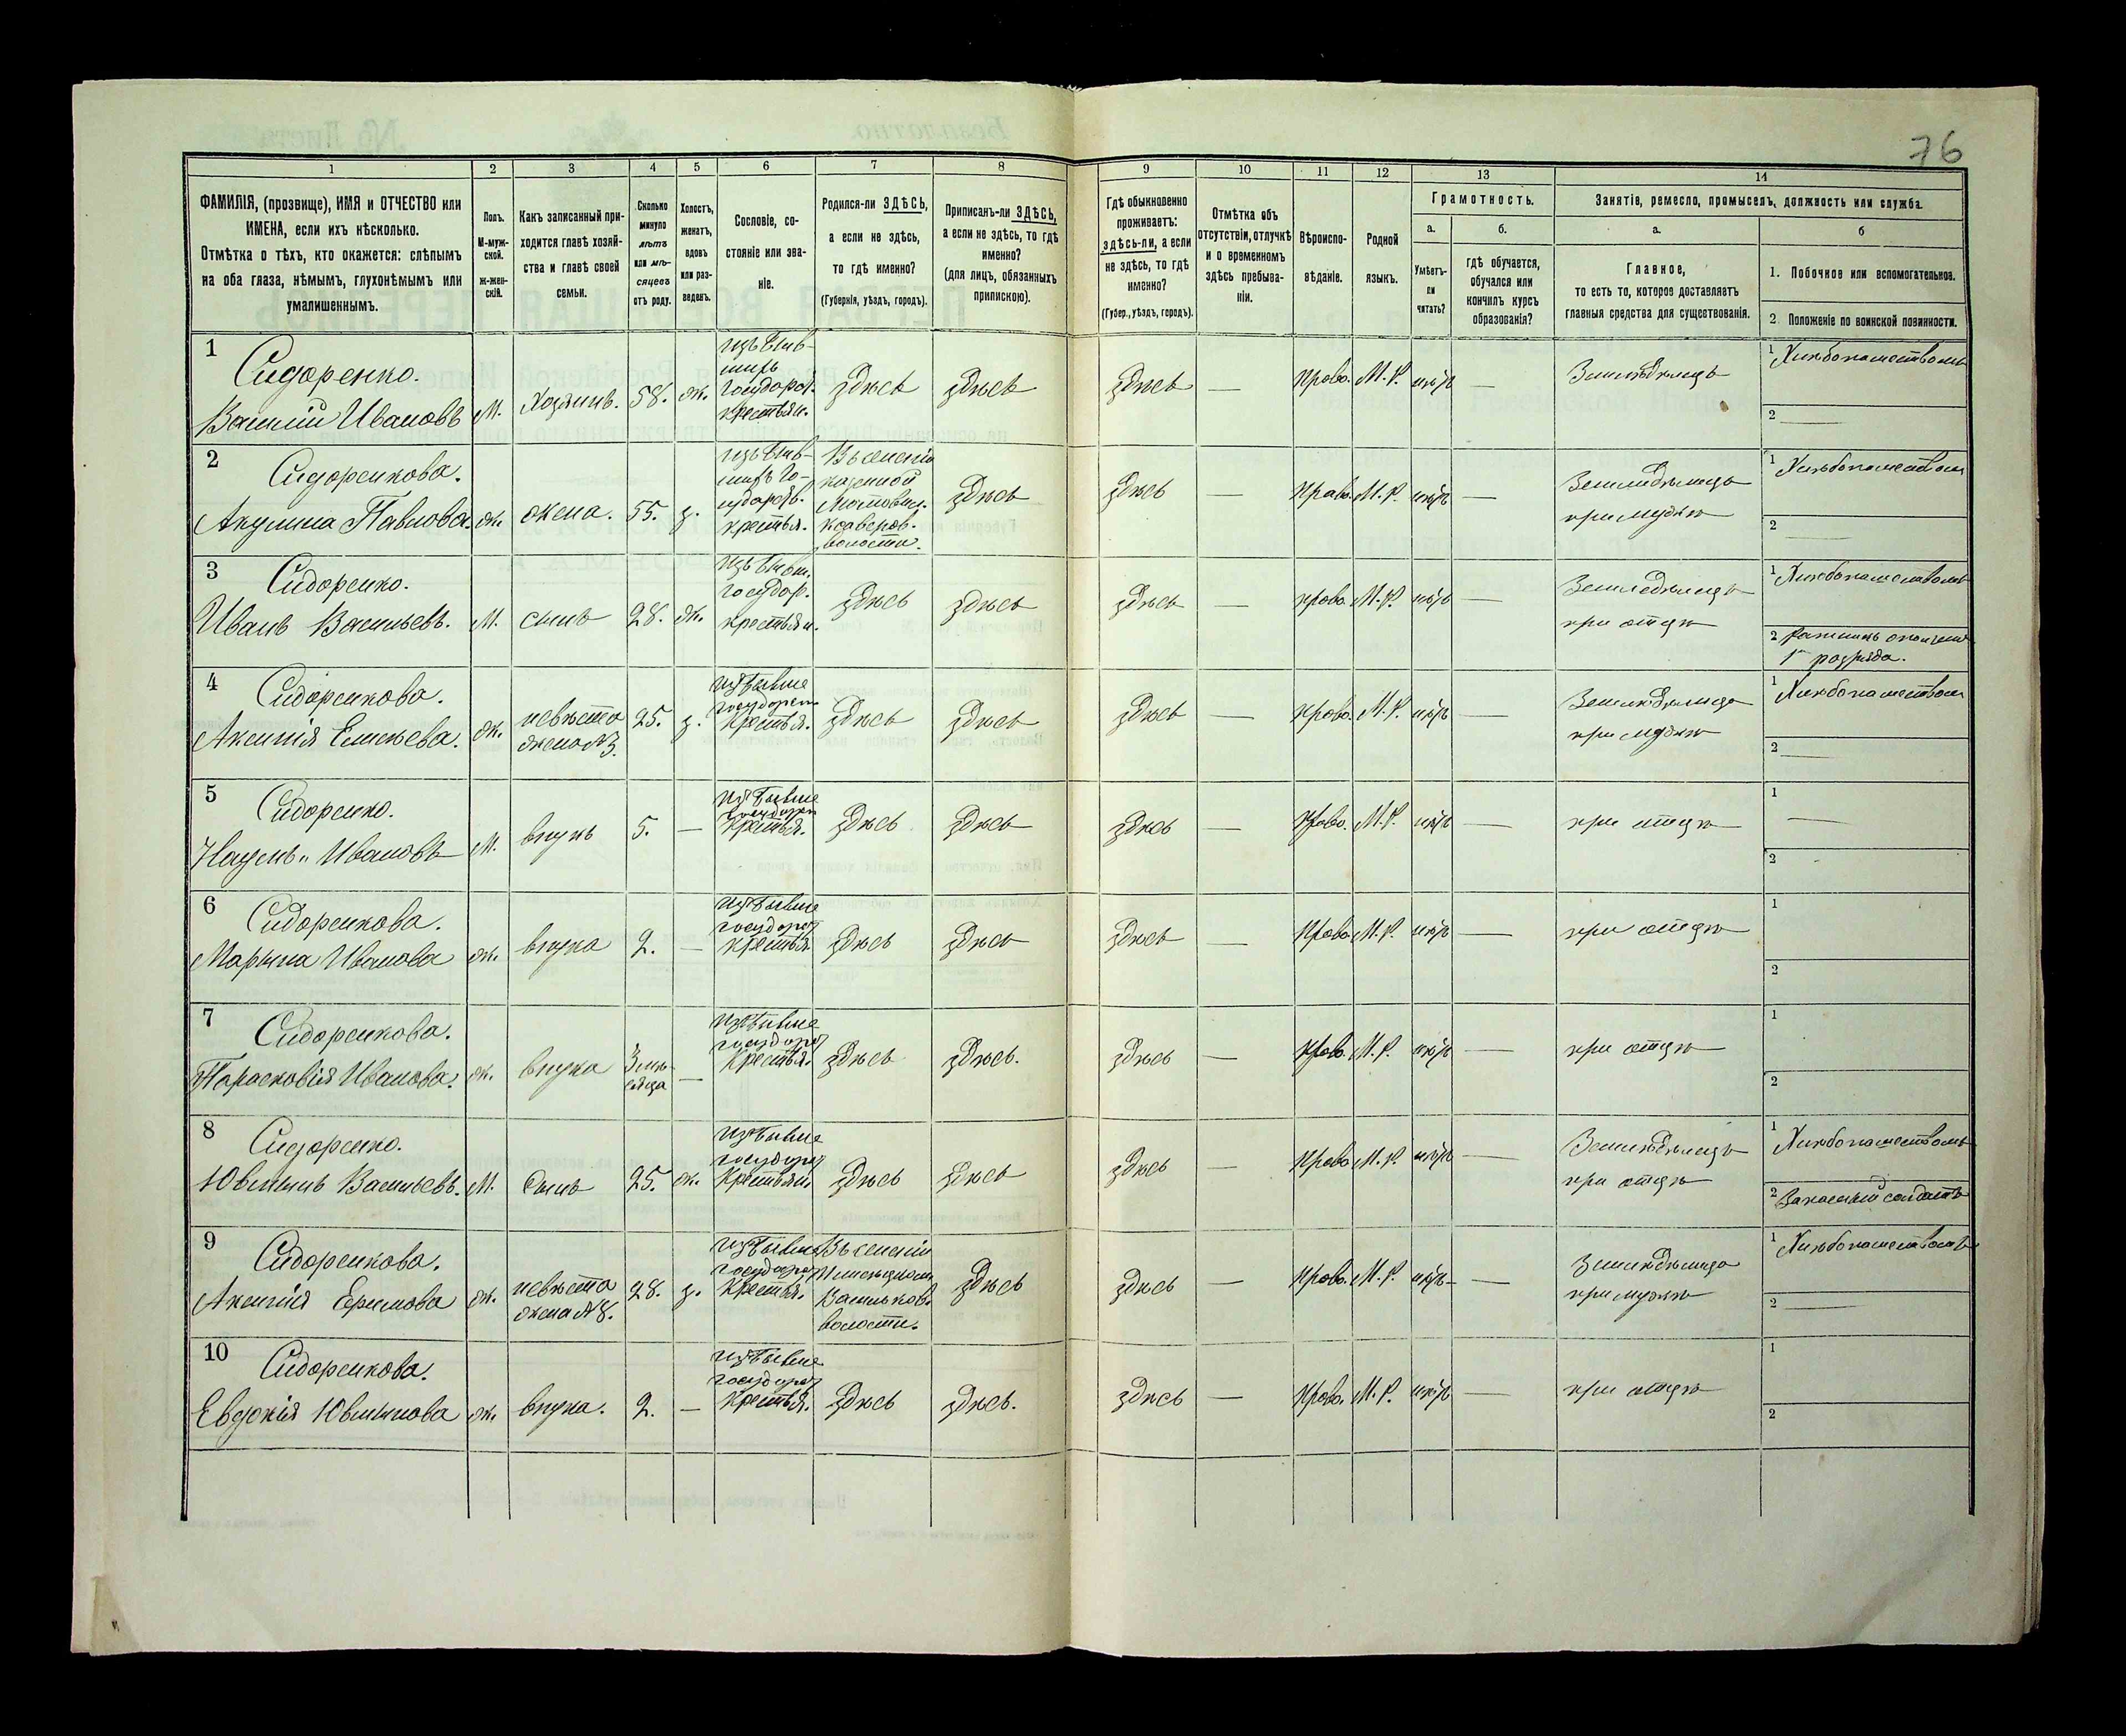 76
1 2 3 4 5 6 7 8 9 10 11 12 13 14
ФАМИЛІЯ, (прозвище), ИМЯ и ОТЧЕСТВО или
ИМЕНА, если ихъ нѣсколько.
Отмѣтка о тѣхъ, кто окажется: слѣпымъ
на оба глаза, нѣмымъ, глухонѣмымъ или
умалишеннымъ.
Полъ.
М-муж-
ской.
ж-жен-
скій.
Какъ записанный при-
ходится главѣ хозяй-
ства и главѣ своей
семьи.
Сколько
минуло
лѣтъ
или мѣ-
сяцевъ
отъ роду.
Холостъ,
женатъ,
вдовъ
или раз-
веденъ.
Сословіе, со-
стояніе или зва-
ніе.
Родился-ли ЗДѢСЬ,
а если не здѣсь,
то гдѣ именно?
(Губернія, уѣздъ, городъ).
Приписанъ-ли ЗДѢСЬ,
а если не здѣсь, то гдѣ
именно?
(для лицъ, обязанныхъ
припискою).
Гдѣ обыкновенно
проживаетъ:
здѣсь-ли, а если
не здѣсь, то гдѣ
именно?
(Губер., уѣздъ, городъ).
Отмѣтка объ
отсутствіи, отлучкѣ
и о временномъ
здѣсь пребыва-
ніи.
Вѣроиспо-
вѣданіе.
Родной
языкъ.
Грамотность.
а.
Умѣетъ-
ли
читать?
б.
гдѣ обучается,
обучался или
кончилъ курсъ
образованія?
Занятіе, ремесло, промыселъ, должность или служба.
а.
Главное,
то есть то, которое доставляетъ
главныя средства для существованія.
б
1. Побочное или вспомогательное.
2. Положеніе по воинской повинности.
1
Сидоренко.
Василій Ивановъ
М.
Хозяинъ.
58.
ж.
изъ быв-
шихъ
государст.
крестьян.
здѣсь
здѣсь
здѣсь
—
Право.
М.Р.
нѣтъ
—
Земледѣлецъ
1 Хлѣбопашествомъ
2 —
2
Сидоренкова.
Акулина Павлова.
ж.
жена.
55.
з.
изъ быв-
шихъ го-
сударств.
крестья.
Въ селеніи
казенной
волости.
здѣсь
здѣсь
—
Право.
М.Р.
нѣтъ
—
Земледѣлица
при мужѣ
1 Хлѣбопашествомъ
2 —
3
Сидоренко.
Иванъ Васильевъ.
М.
сынъ
28.
ж.
изъ бывш.
государ.
крестьян.
здѣсь
здѣсь
здѣсь
—
право.
М.Р.
нѣтъ
—
Земледѣлецъ
при отцѣ
1 Хлѣбопашествомъ
2 Ратникъ ополчен.
1го разряда.
4
Сидоренкова.
Аксинія Елисѣева.
ж.
невѣста
жена №3.
25.
з.
изъ бывше
государст.
крестья.
здѣсь
здѣсь
здѣсь
—
право.
М.Р.
нѣтъ
—
Земледѣлица
при мужѣ
1 Хлѣбопашествомъ
2 —
5
Сидоренко.
Наумъ Ивановъ
М.
внукъ
5.
—
изъ бывше
государст
крестья.
здѣсь
здѣсь
здѣсь
—
Право.
М.Р.
нѣтъ
—
при отцѣ
1 —
2
6
Сидоренкова.
Марина Иванова
ж.
внука
2.
—
изъ бывше
государст
крестья
здѣсь
здѣсь
здѣсь
—
Право.
М.Р.
нѣтъ
—
при отцѣ
1
2
7
Сидоренкова.
Парасковія Иванова.
ж.
внука
3 мѣ-
сяца
—
изъ бывше
государст
крестья.
здѣсь
здѣсь.
здѣсь
—
Право.
М.Р.
нѣтъ
—
при отцѣ
1
2
8
Сидоренко.
Васильевъ.
М.
Сынъ
25.
ж.
изъ бывше
государст
крестьян.
здѣсь
здѣсь
здѣсь
—
Право
М.Р.
нѣтъ
—
Земледѣлецъ
при отцѣ
1 Хлѣбопашествомъ
2 Запасный солдатъ
9
Сидоренкова.
Аксинія Ефимова
ж.
невѣста
жена №8.
28.
з.
изъ бывше
государст
крестья.
Въ селеніи
волости.
здѣсь
здѣсь
—
Право.
М.Р.
нѣтъ
—
Земледѣлица
при мужѣ
1 Хлѣбопашествомъ
2 —
10
Сидоренкова.
Евдокія
ж.
внука.
2.
—
изъ бывше
государст
крестья.
здѣсь
здѣсь.
здѣсь
—
Право.
М.Р.
нѣтъ
—
при отцѣ
1
2